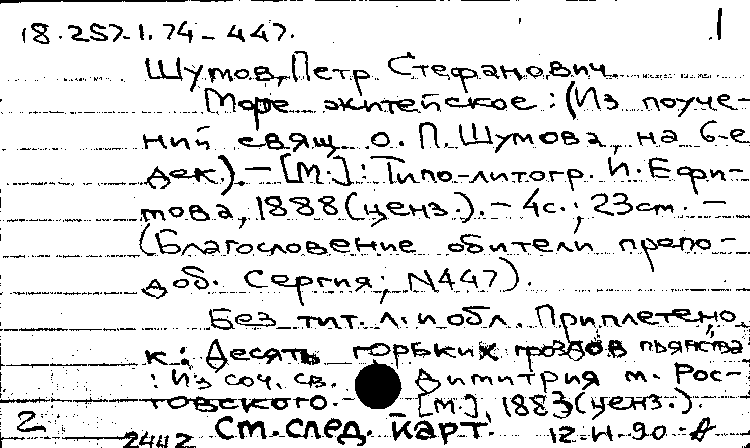 18.257.1.74-447. 1
Шумов, Петр Стефанович.
Море житейское: (Из поуче-
ний свящ. о. П. Шумова, на 6-е
дек.). - [М.]: Типо-литогр. И. Ефи-
мова, 1888 (ценз.). - 4с.; 23см. -
(Благословение обители препо-
доб. Сергия; N447).
Без тит. л. и обл. Приплетено
к: Десять горьких плодов пьянства
: Из соч. св. Димитрия м. Рос-
товского. - [М.], 1883 (ценз.).
2 2442 См. след. карт. 12-И-90-